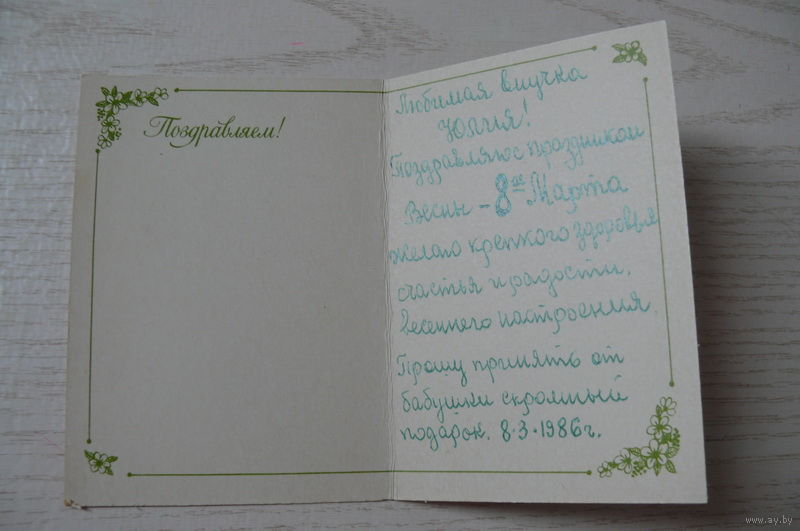 Поздравляем!
Любимая внучка
Юлия!
Поздравляю с праздником
Весны – 8ое Марта
желаю крепкого здоровья
счастья и радости,
весеннего настроения.
Прошу принять от
бабушки скромный
подарок. 8·3·1986г.
www.ay.by